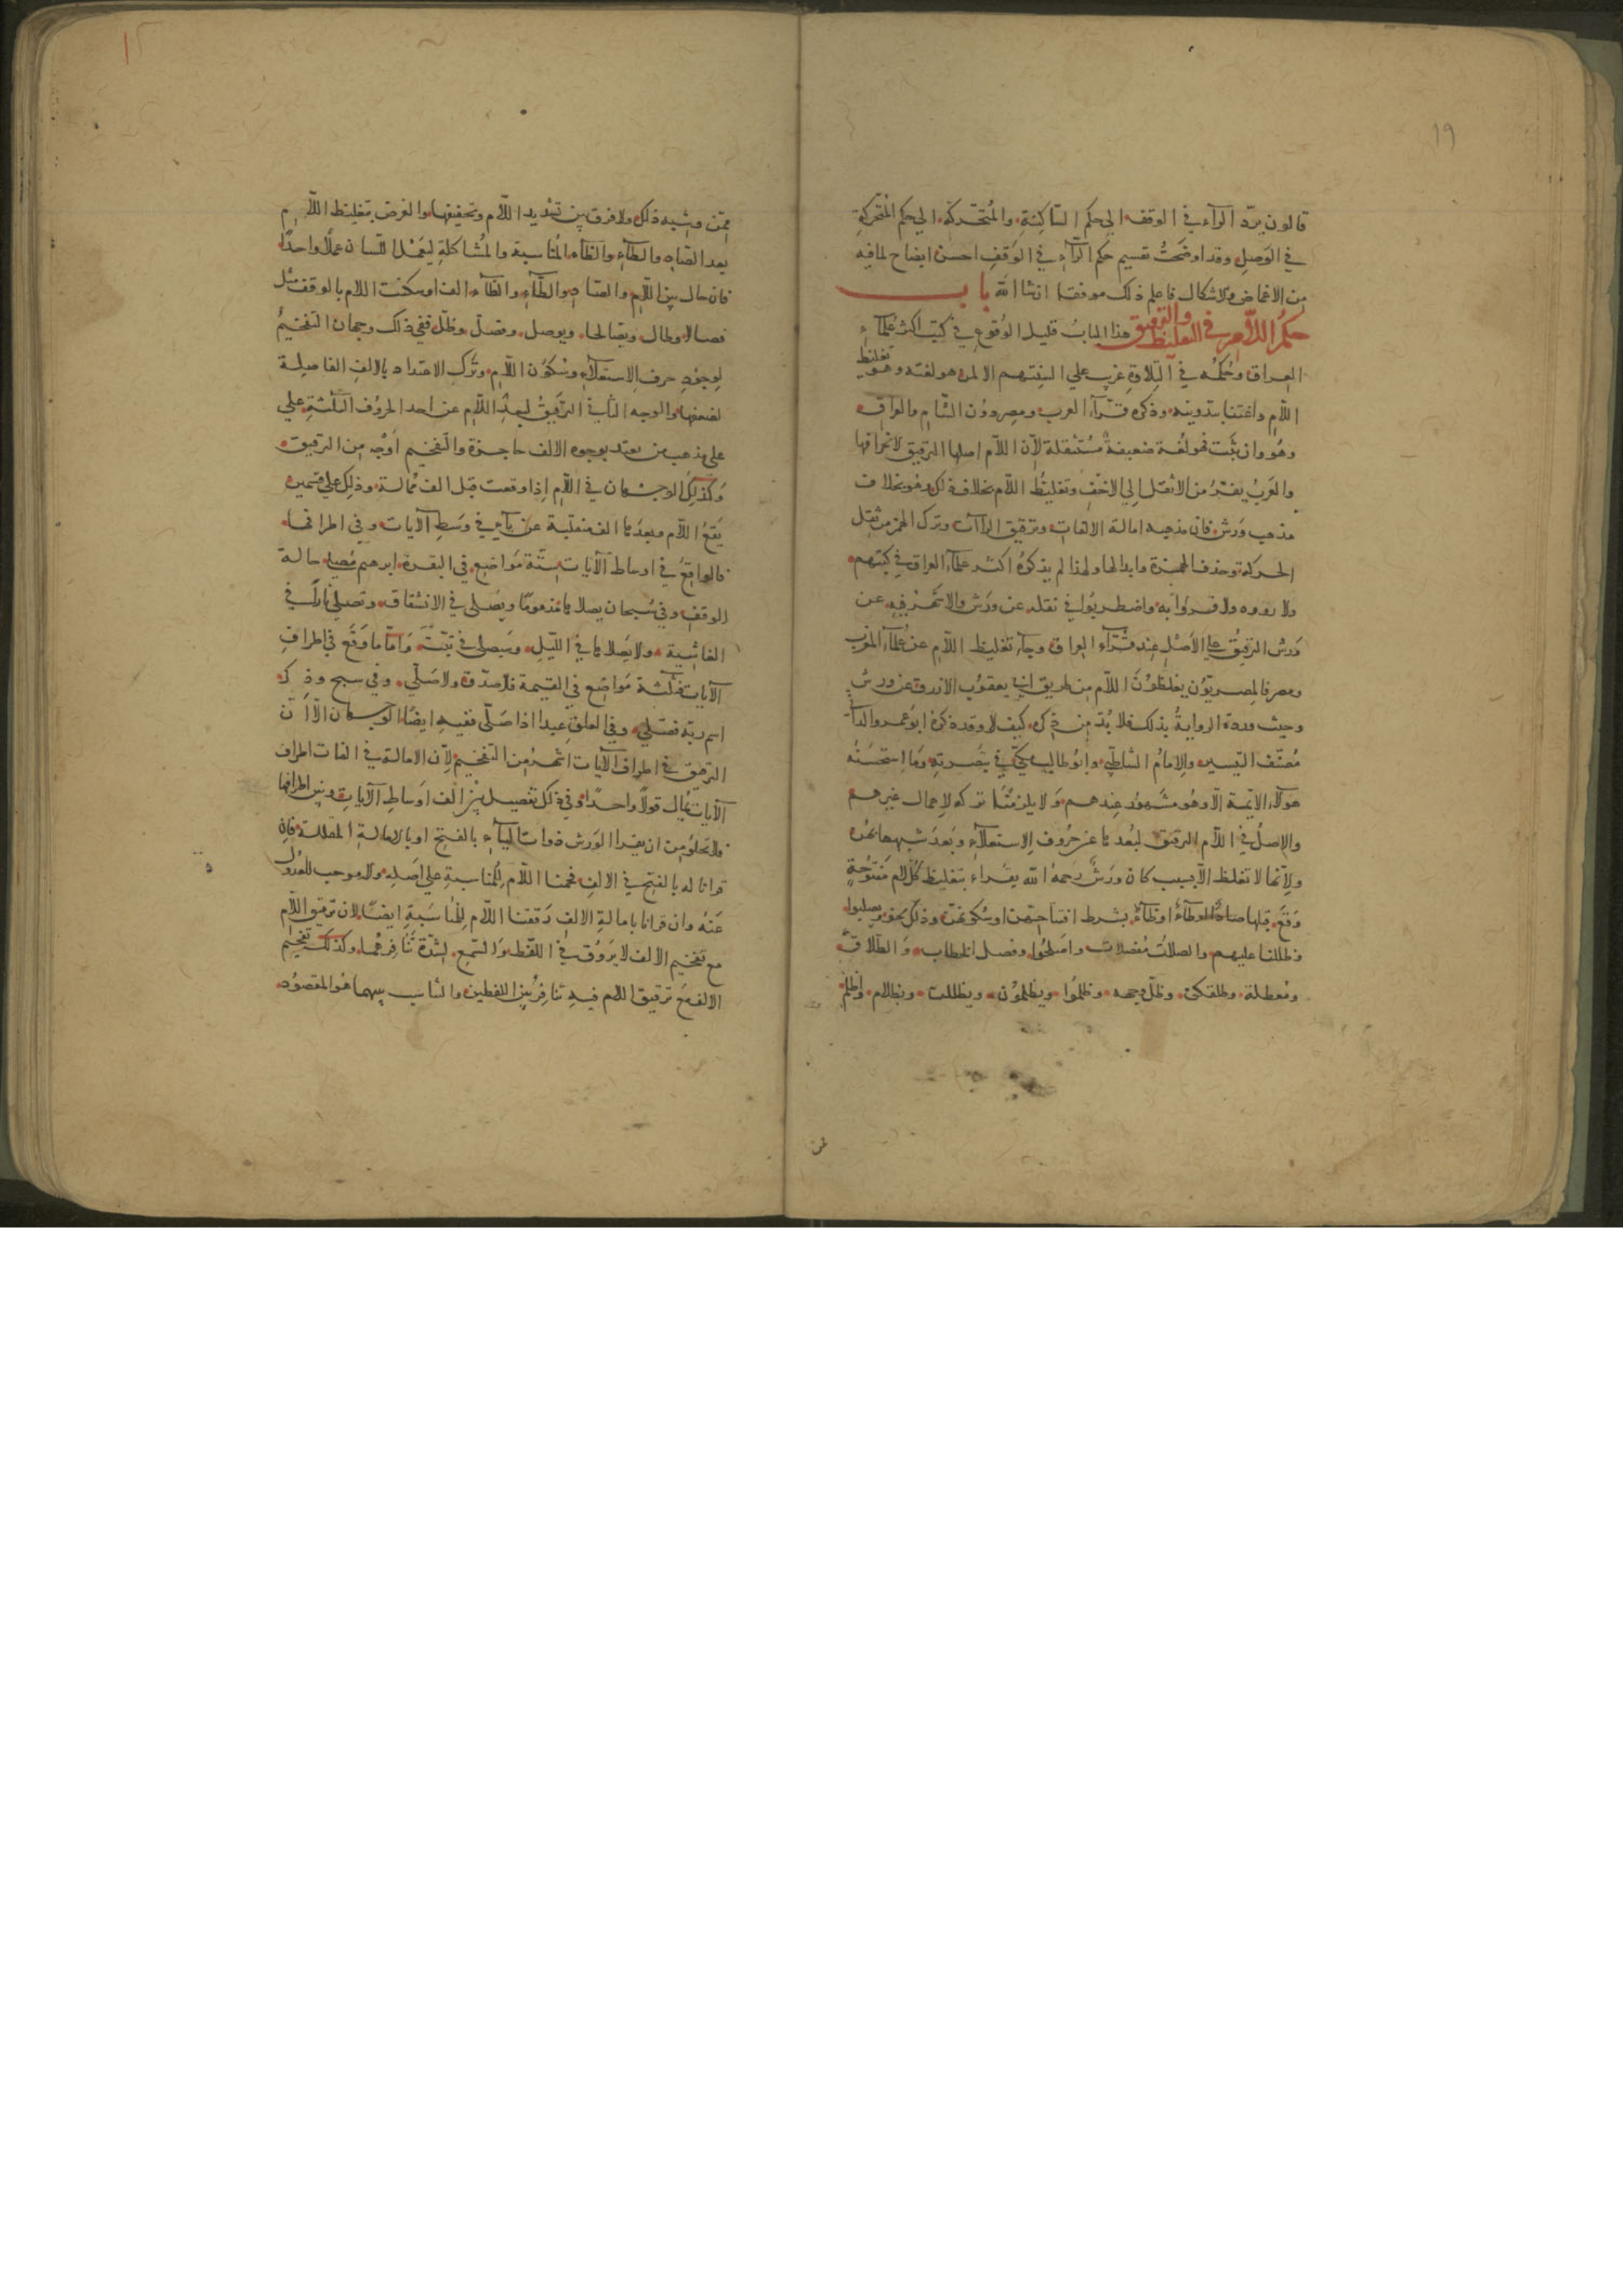 ١٩
قالون يردّ الرآء في الوقف الي حكم السّاكنة والمُتحرّكة الي حكم المتحركة
في الوَصل وقد اوضَحتُ تقسيم حكم الرّآء في الوَقف احسن ايضاح لما فيه
من الاغماض والاشكال فاعلم ذلك موفقا ان شا الله باب
حكمُ اللّام في التغليظ والترقيق هذا البابُ قليل الوُقوع في كتب اكثر عُلمآء
العراق وحُكمُه في التِلاوة غريب علي السِنتهم الا لمن هو لغته وهو تغليظ
اللّام واعتنا بتدوينه وذكره قرّآء الغرب ومصر دُون الشّام والعراق
وهُو وان ثبَت فهو لُغة ضعيفة مُستثقلة لأن اللّام اصلها الترقيق لانحرافها
والعَربُ يفرّ من الأثقل إلي الاخف وتغليظُ اللّام بخلاف ذلك وهو بخلاف
مذهب وَرش فان مذهبه امالة الالفات وترقيق الرآات وترك الهمز من ثقل
الحركة وحذف الهمزة وابدالها ولهذا لم يذكرهُ اكثر علمآء العراق في كتبهم
ولا رووه ولا قروا به واضطربُوا في نقله عن ورش والاشهر فيه عن
وَرش الترقيقُ علي الأصل عند قرّآء العراق وجآء تغليظ اللّام عن عُلمآء المغرب
ومصر فالمصريّون يغلظوُن اللّام من طريق ابي يعقوب الازرق عن ورش
وحيث وردة الروايةُ بذلك فلا بُدّ من ذكره كيف لا وقد ذكرهُ ابو عمرو الدآني
مُصنّف التيسير والإمامُ الشاطبّي وابُو طالب مكّي في تبصرته وما استحسَنهُ
هولآء الائمة الّا وهُو مشهورُ عِندهم وَلا يلزمُنا تركه لاهمال غيرهم
والاصلُ في اللّام الترقيق لبُعدها عن حُروف الاستعلآء وبَعد شبهها بهنّ
ولأنّها لا تغلظ الّا بسبب كان ورَشُ رَحمهُ الله يقراء بتغليظ كلّ لام مفتُوحةٍ
وَقعَ قبلها صادٌ او طآءٌ او ظآءٌ بشرط افتتاحهن او سُكونهنّ وذلك نحو يصلبوا
وظللنا عليهم والصلاتُ مُفصلات واصَلحُوا وفصل الخطاب وَالطّلاق
ومُعطلة وطلقكنّ وظلّ وجهه وظلمُوا ويظلموُن ويظللن وبظلام واظلم
ممّن وشبه ذلك ولا فرق بين تشديد اللّام وتخفيفها والغرض بتغليظ اللّام
بعد الصّاد والطآء والظآء المُناسبة والمُشاكلةِ ليَعْمل اللّسان عملًا واحدًا
فان حال بين اللّام والصّاد والطّآء والظّآء الف او سكنت اللام بالوقف مثل
فصالا وطال ويصّالحا ويوصل وفصلَ وظلّ ففي ذلك وجهان التفخيمُ
لوجوُدِ حرف الاستعلآء وسكوُن اللّام وتَرك الاعتداد بالالف الفاصلة
لضعفها والوجه الثاني الترقيقُ لبعدِ اللّام عن احد الحروُف الثلثةِ علي
علي مذهب من يعتد بوجوه الالف حاجزة والتفخيم اَوْجُه من الترقيق
وَكذلك الوجهان في اللّام إذا وقعت قبل الف مُمالة وذلك علي قسمين
يَقعُ اللّام وبعدَها الف منقلبة عن يآء في وسَطِ الآيات وفي اطرافها
فالواقعُ في اوساط الآيات ستّة مَواضع في البقرة ابرهيم مُصلي حالة
الوقف وفي سُبحان يصلاها مذموُمًا ويَصَلي في الانشقاق وتصلي نارًا في
الغاشية ولا يَصلاها في اللّيل وسَيصلي في تبّت وَامّا ما وَقَع في اطرافِ
الآيات فثلثة مَواضع في القيمة فلا صدّق ولا صَلّي وفي سبح وذكر
اسم ربّه فصَلّي وفي العلق عبدا اذا صَلّي ففيه ايضًا الوجهان الّا اَنّ
الترقيق في اطراف الآيات اشهرُ من التفخيم لأن الامالة في الفات اطراف
الآيات تُمال قولًا واحدًا وفي ذلك تفصيل بيْن الف اوساطِ الآياتِ وبين اطرافها
فلا يخلوُ من ان يقرا الوَرش ذوات اليآء بالفتح او بالامالة المقللة فان
قرانا له بالفتح في الالف فخمنا اللّام للمُناسبة علي اصله ولا موجب للعدُول
عَنهُ وان قرانا بامالةِ الالف رَققنا اللّام للمُناسَبةِ ايضًا لان ترقيق اللّام
مع تفخيم الالف لا يَروُق في اللفظ وَالسّمع لشدّة تنافُرهُما وكذلك تفخيم
الالف مَع ترقيق اللام فيه تنافرُ بين اللفظين والتناسب بينهما هُو المقصوُد